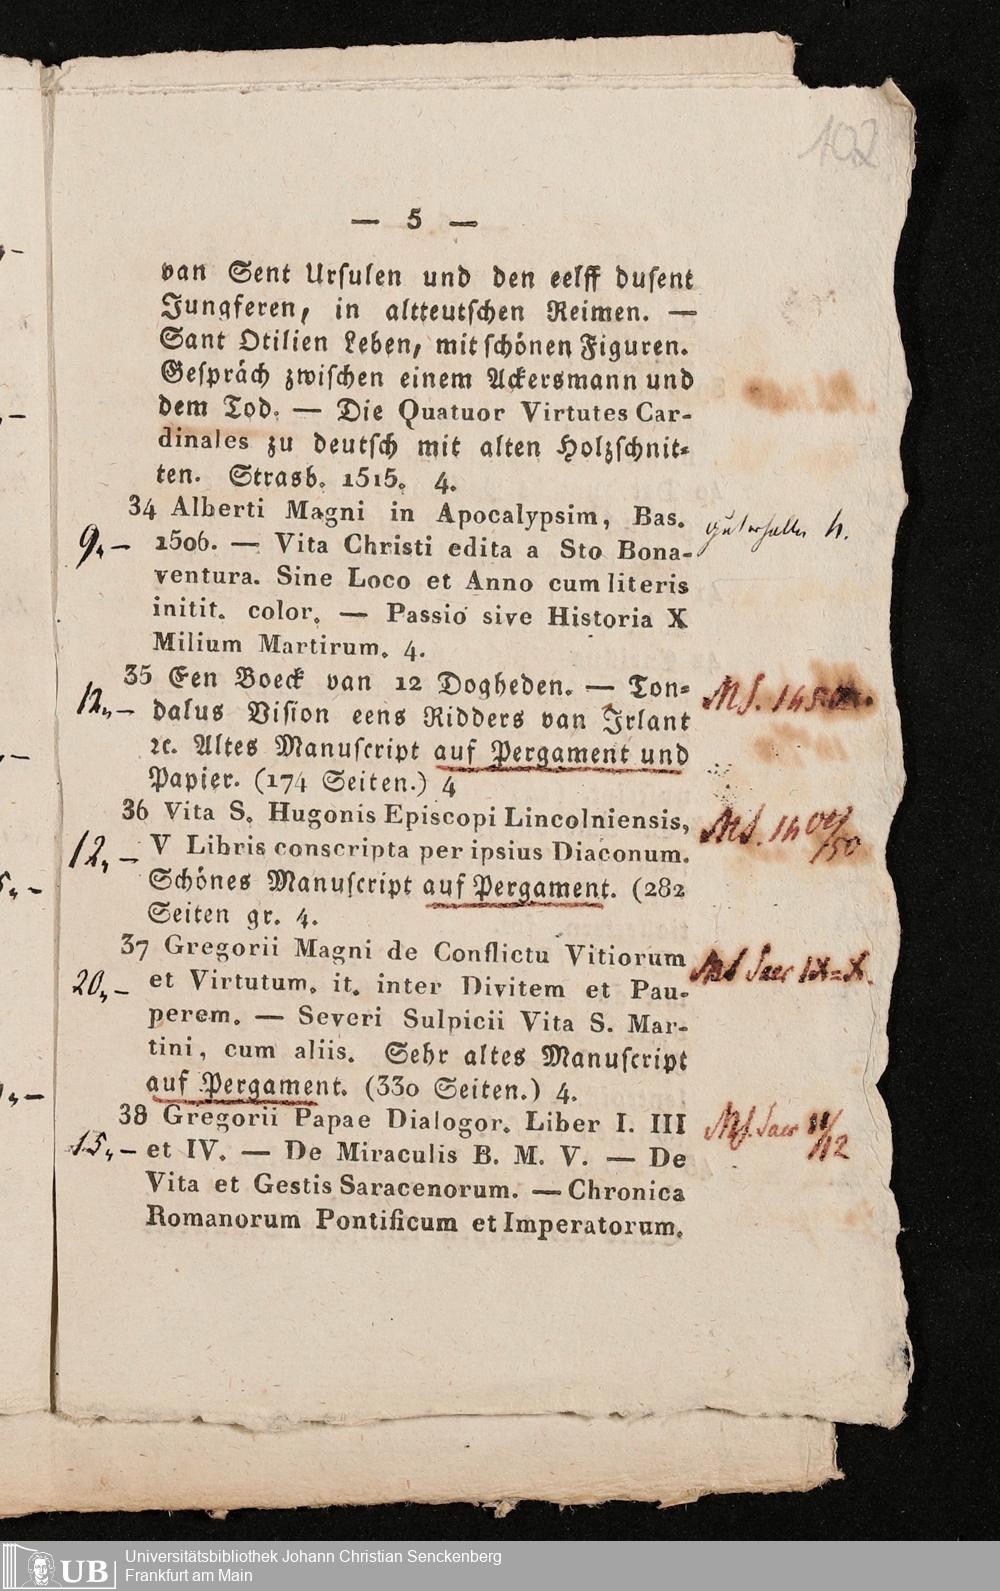 102
— 5 —
van Sent Ursulen und den eelff dusent
Jungferen, in altteutschen Reimen. —
Sant Otilien Leben, mit schönen Figuren.
Gespräch zwischen einem Ackersmann und
dem Tod. — Die Quatuor Virtutes Car-
dinales zu deutsch mit alten Holzschnit-
ten. Strasb. 1515. 4.
34 Alberti Magni in Apocalypsim, Bas.
9,– 1506. — Vita Christi edita a Sto Bona-
ventura. Sine Loco et Anno cum literis
initit. color. — Passio sive Historia X
Milium Martirum. 4.
35 Een Boeck van 12 Dogheden. — Ton-
12,– dalus Vision eens Ridders van Irlant
ꝛc. Altes Manuscript auf Pergament und
Papier. (174 Seiten.) 4
36 Vita S. Hugonis Episcopi Lincolniensis,
12,– V Libris conscripta per ipsius Diaconum.
Schönes Manuscript auf Pergament. (282
Seiten gr. 4.
37 Gregorii Magni de Conflictu Vitiorum
20,– et Virtutum. it. inter Divitem et Pau-
perem. — Severi Sulpicii Vita S. Mar-
tini, cum aliis. Sehr altes Manuscript
auf Pergament. (330 Seiten.) 4.
38 Gregorii Papae Dialogor. Liber I. III
15,– et IV. — De Miraculis B. M. V. — De
Vita et Gestis Saracenorum. — Chronica
Romanorum Pontificum et Imperatorum.
Ms. 14
Ms Saec IX-X.
Ms. Saec 11/12
UB
Universitätsbibliothek Johann Christian Senckenberg
Frankfurt am Main